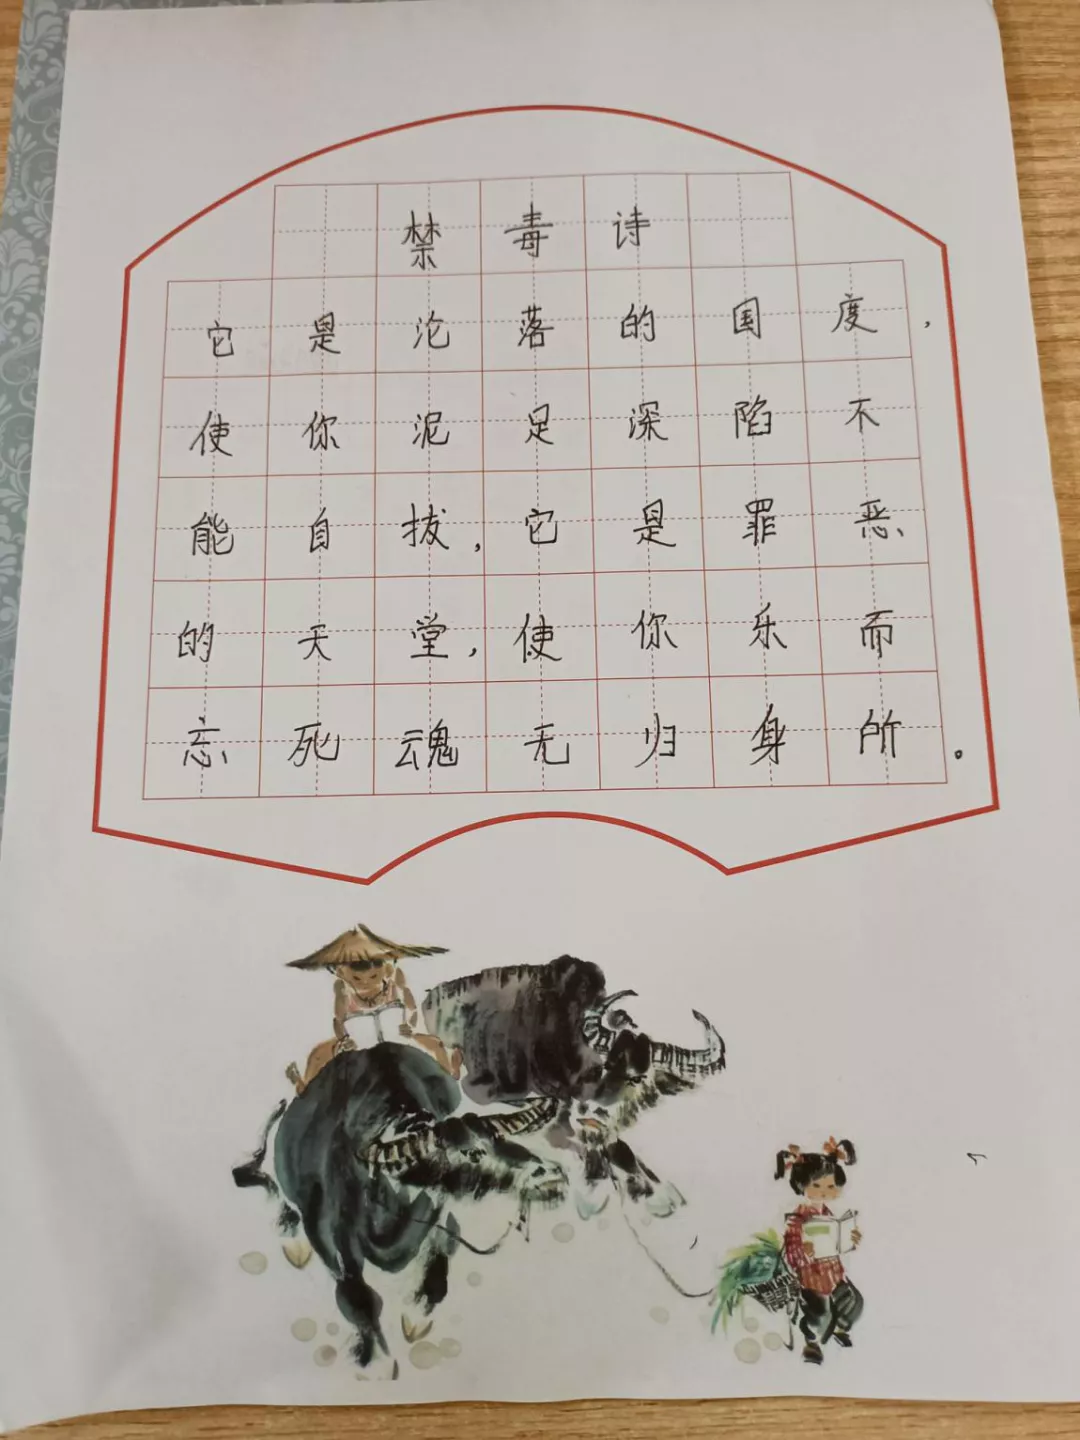 禁毒诗
它是沦落的国度，
使你泥足深陷不
能自拔，它是罪恶
的天堂，使你乐而
忘死魂无归身所。